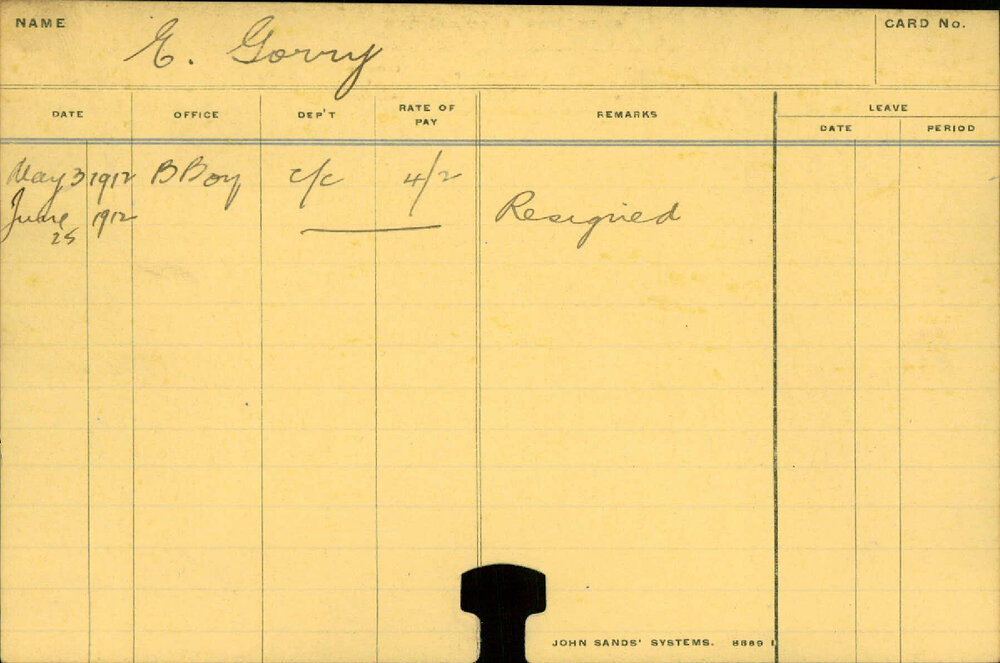 NAME E. Gorry CARD No.
DATE OFFICE DEP'T RATE OF PAY REMARKS LEAVE
DATE PERIOD
May 3 1912 B Boy c/c 4/2
June 25 1912 Resigned
JOHN SANDS' SYSTEMS. 8889